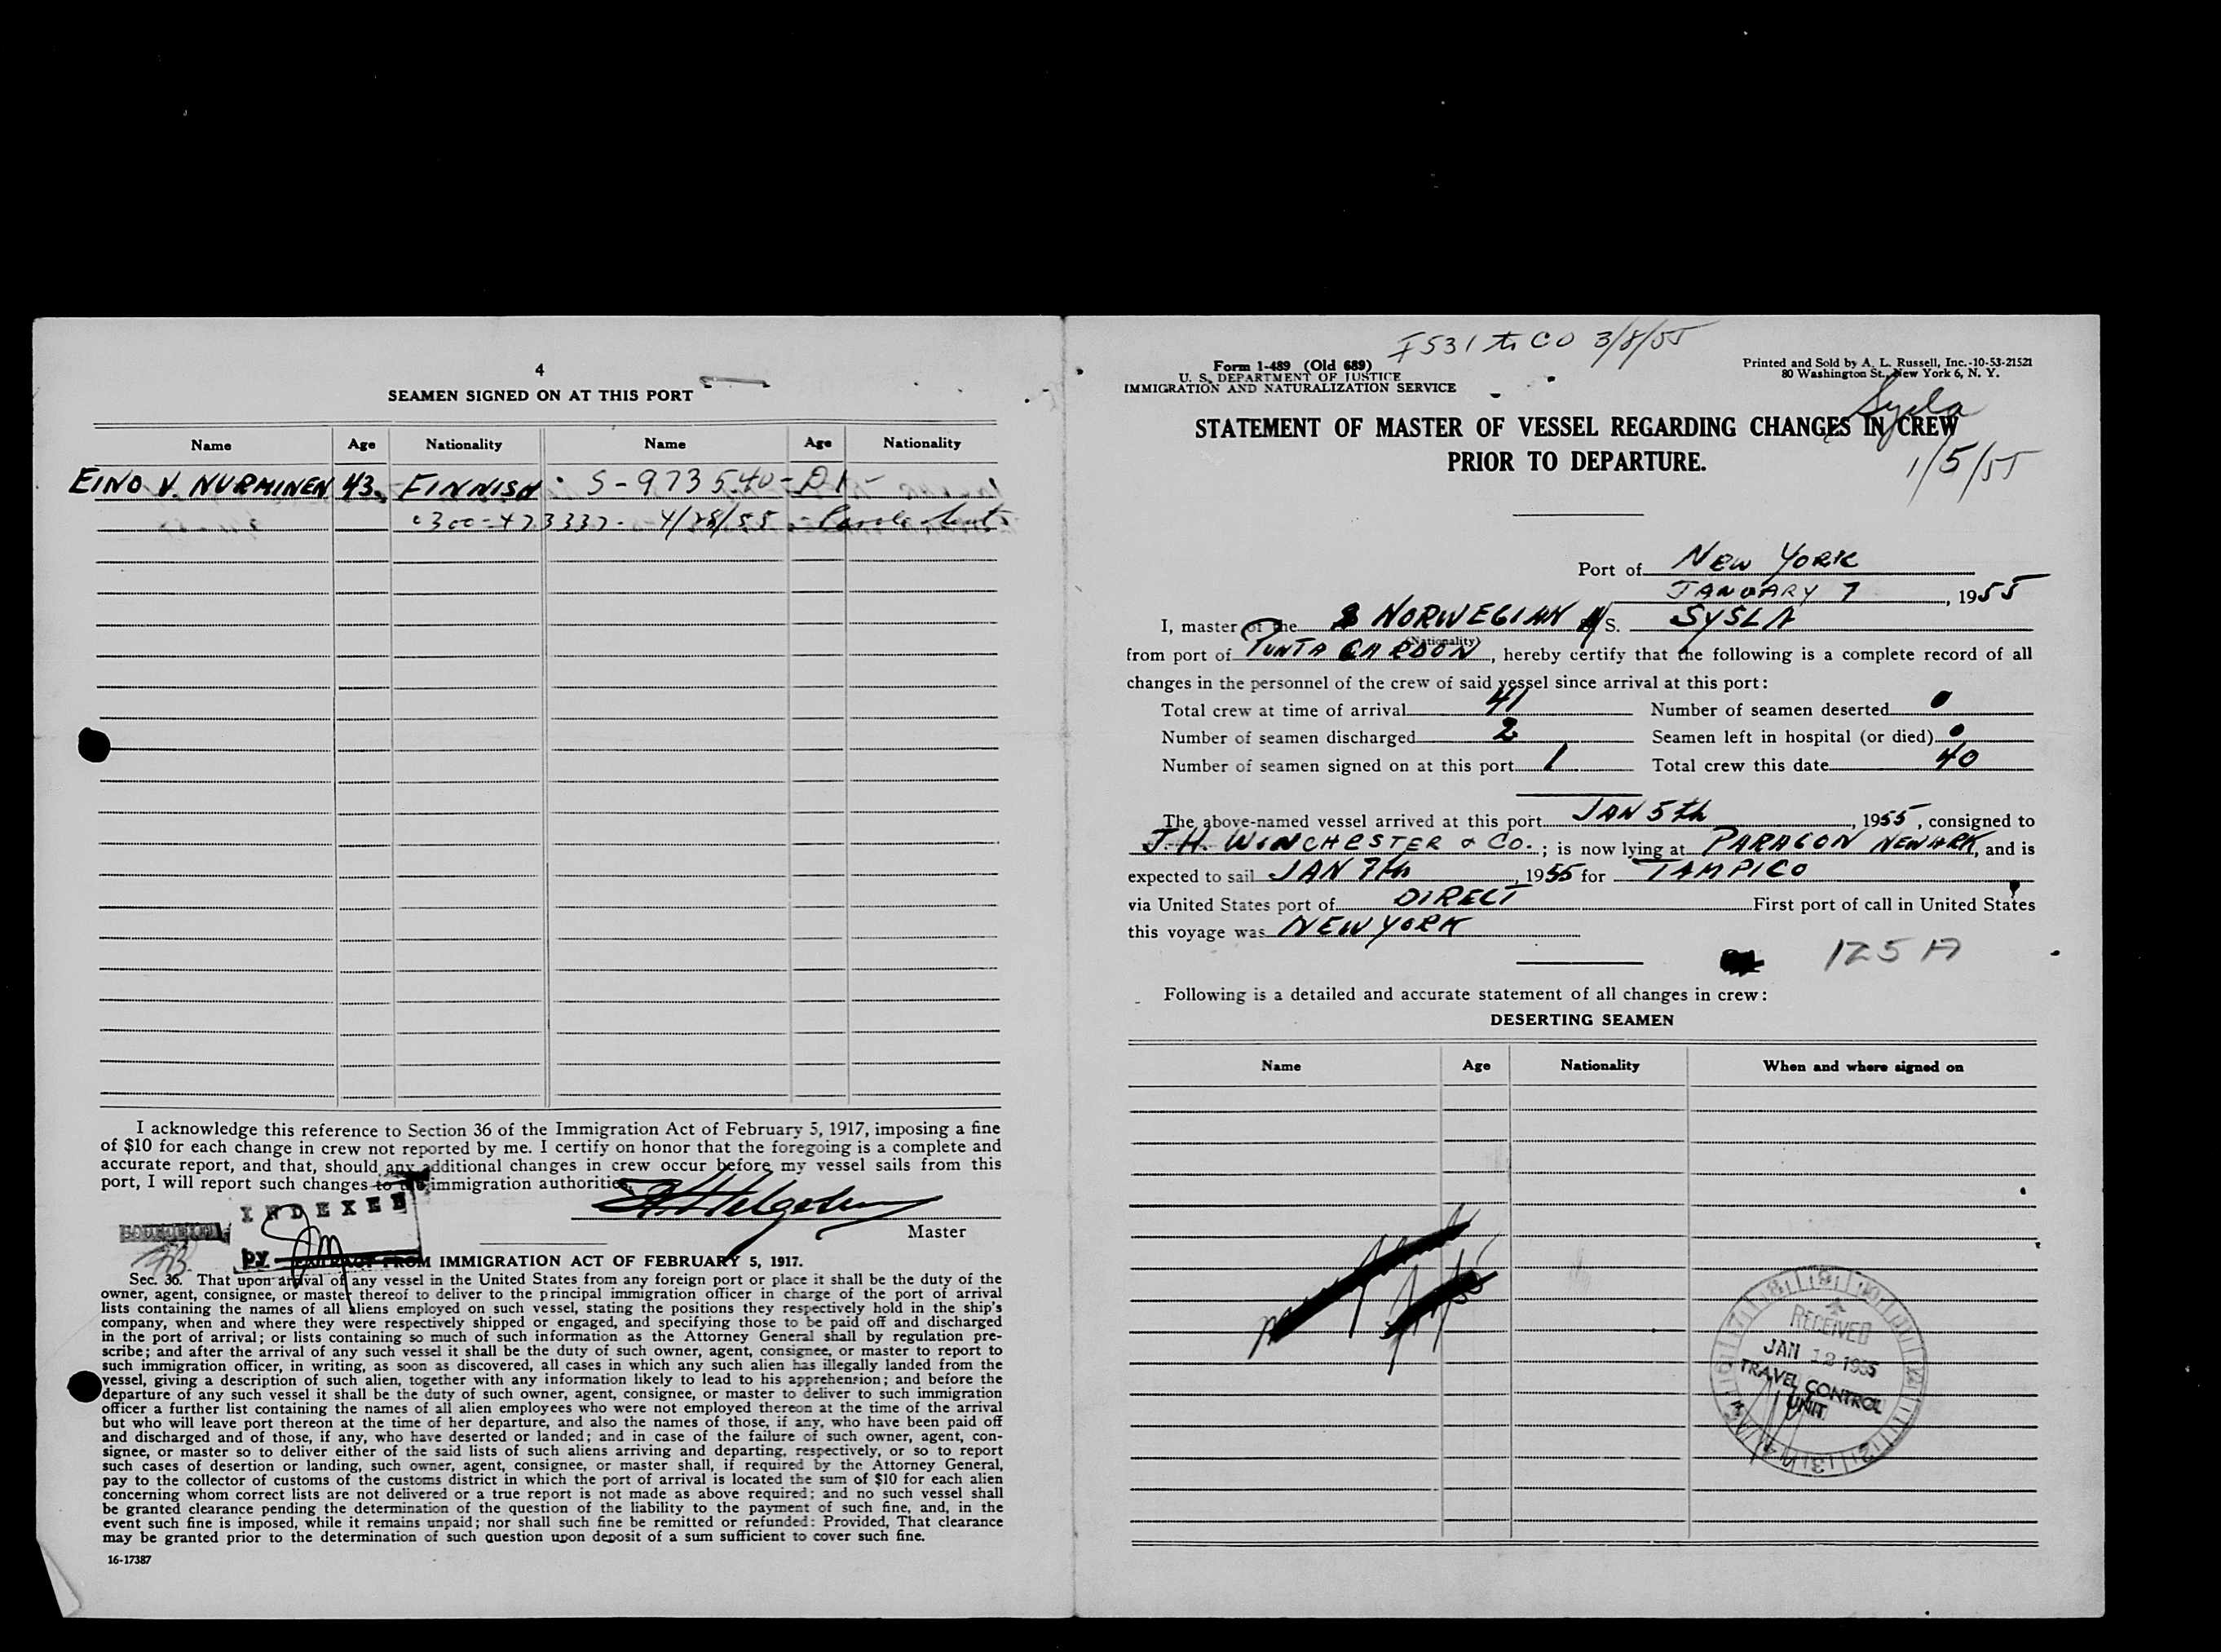 4
SEAMEN SIGNED ON AT THIS PORT
Name Age Nationality Name Age Nationality
EINO V. NURMINEN 43 FINNISH S-973540-D1-
0300-473337- 4/28/55 -
I acknowledge this reference to Section 36 of the Immigration Act of February 5, 1917, imposing a fine
of $10 for each change in crew not reported by me. I certify on honor that the foregoing is a complete and
accurate report, and that, should any additional changes in crew occur before my vessel sails from this
port, I will report such changes to the immigration authorities.
INDEXED
Master
by
EXTRACT FROM IMMIGRATION ACT OF FEBRUARY 5, 1917.
Sec. 36. That upon arrival of any vessel in the United States from any foreign port or place it shall be the duty of the
owner, agent, consignee, or master thereof to deliver to the principal immigration officer in charge of the port of arrival
lists containing the names of all aliens employed on such vessel, stating the positions they respectively hold in the ship's
company, when and where they were respectively shipped or engaged, and specifying those to be paid off and discharged
in the port of arrival; or lists containing so much of such information as the Attorney General shall by regulation pre-
scribe; and after the arrival of any such vessel it shall be the duty of such owner, agent, consignee, or master to report to
such immigration officer, in writing, as soon as discovered, all cases in which any such alien has illegally landed from the
vessel, giving a description of such alien, together with any information likely to lead to his apprehension; and before the
departure of any such vessel it shall be the duty of such owner, agent, consignee, or master to deliver to such immigration
officer a further list containing the names of all alien employees who were not employed thereon at the time of the arrival
but who will leave port thereon at the time of her departure, and also the names of those, if any, who have been paid off
and discharged and of those, if any, who have deserted or landed; and in case of the failure of such owner, agent, con-
signee, or master so to deliver either of the said lists of such aliens arriving and departing, respectively, or so to report
such cases of desertion or landing, such owner, agent, consignee, or master shall, if required by the Attorney General,
pay to the collector of customs of the customs district in which the port of arrival is located the sum of $10 for each alien
concerning whom correct lists are not delivered or a true report is not made as above required; and no such vessel shall
be granted clearance pending the determination of the question of the liability to the payment of such fine, and, in the
event such fine is imposed, while it remains unpaid; nor shall such fine be remitted or refunded: Provided, That clearance
may be granted prior to the determination of such question upon deposit of a sum sufficient to cover such fine.
16-17387
I531 to CO 3/8/55
Form 1-489 (Old 689)
U. S. DEPARTMENT OF JUSTICE
IMMIGRATION AND NATURALIZATION SERVICE
Printed and Sold by A. L. Russell, Inc.-10-53-21521
80 Washington St., New York 6, N. Y.
Sysla
STATEMENT OF MASTER OF VESSEL REGARDING CHANGES IN CREW
PRIOR TO DEPARTURE.
1/5/55
Port of NEW YORK
JANUARY 7, 1955
I, master of the NORWEGIAN S. SYSLA
(Nationality)
from port of PUNTA CARDON, hereby certify that the following is a complete record of all
changes in the personnel of the crew of said vessel since arrival at this port:
Total crew at time of arrival 41 Number of seamen deserted 0
Number of seamen discharged 2 Seamen left in hospital (or died) 0
Number of seamen signed on at this port 1 Total crew this date 40
The above-named vessel arrived at this port JAN 5th, 1955, consigned to
J.H. WINCHESTER & CO.; is now lying at PARAGON NEWARK, and is
expected to sail JAN 7th, 1955 for TAMPICO
via United States port of DIRECT First port of call in United States
this voyage was NEW YORK
125 A
Following is a detailed and accurate statement of all changes in crew:
DESERTING SEAMEN
Name Age Nationality When and where signed on
RECEIVED
JAN 12 1955
TRAVEL CONTROL
UNIT